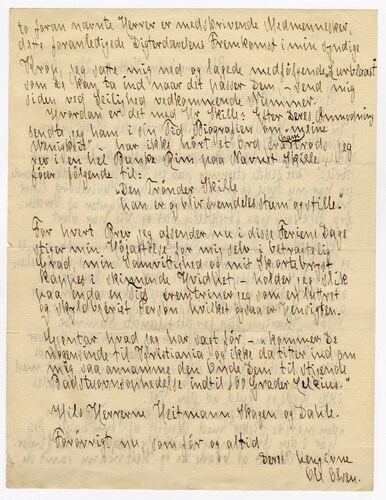 to foran nævnte Herrer er medskrivende Medmennesker,
dette foranledigede Digterdavelens Fremkomst i min syndige
Krop, jeg satte mig ned og lagede medfølgende
som De kan ta ind naar det passer Dem – send mig
siden ved Leilighed vedkommende Nummer.
Hvordan er det med Hr. Skille? Efter Deres Anmodning
sendte jeg ham i sin Tid Biografien om "mine
– har ikke hørt et Ord fra ham jeg
en hel Banke Rim paa Navnet Skille
føier følgende til:
"Den Trønder Skille
han er og blir fremdeles stum og stille."
For hvert Brev jeg afsender nu i disse Feriens Dage
stiger min Høiagtelse for mig selv i betragtelig
Grad min Samvittighed og mit Skjortebryst
kappes i skinnende Hvidhet – holder jeg slik
paa enda en Tid fremtriner jeg som en lutret
og skyldbevist Person hvilket ogsaa er Hensigten.
Gjentar hvad jeg har sagt før – "kommer De
nogensinde til Christiania og ikke da titter ind om
mig saa annamme den Onde Dem til stirende
Badstueovnsophedelse indtil 100 Grader Celcius."
Hils Herrerne Heitmann Skogen og Dahle.
Forøvrigt nu, som før og altid
Deres hengivne
Ole Olsen.